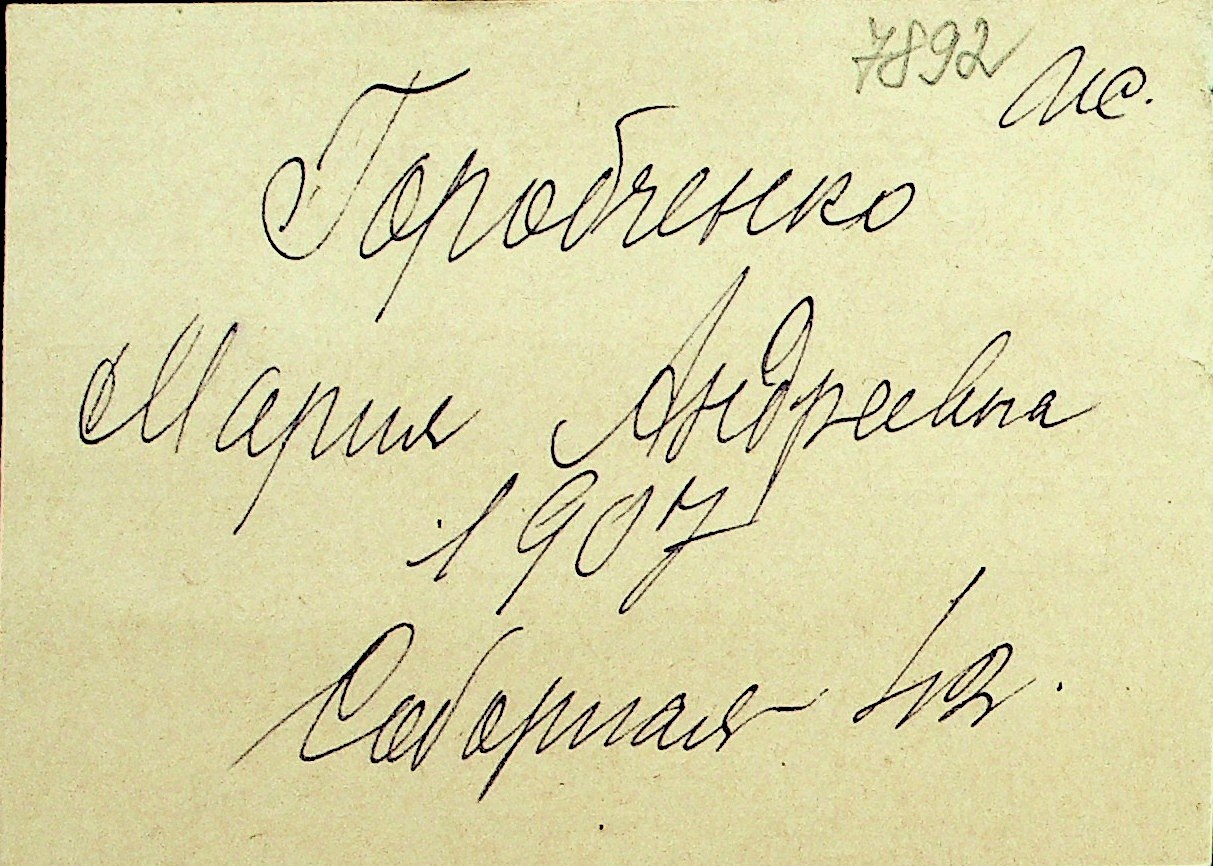 7892 Ис.
Горобченко
Мария Андреевна
1907
Соборная 42.